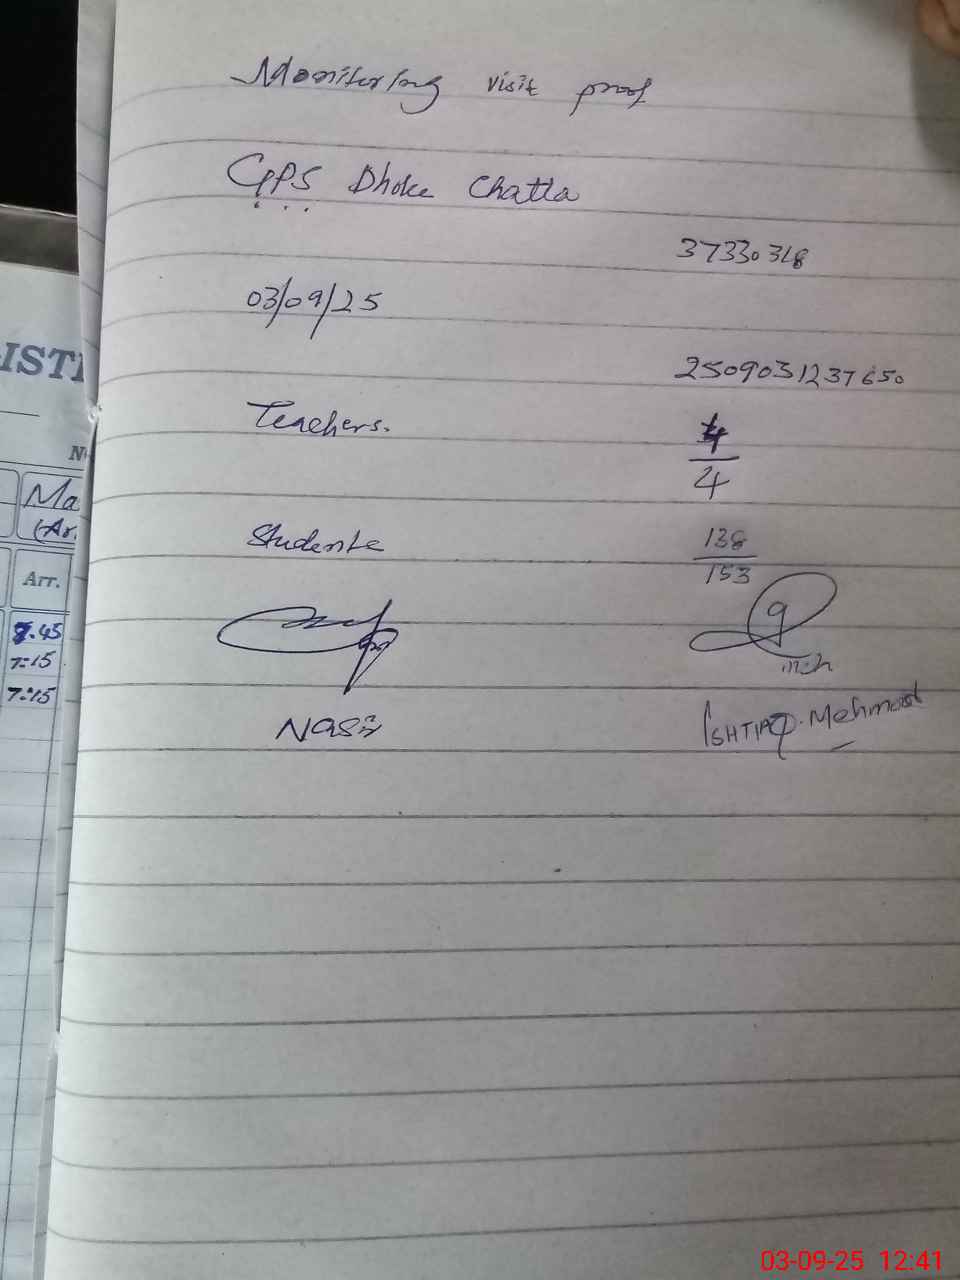 Monitoring visit proof
GPS Dhoke Chatta
37330318
03/09/25
2509031237650
Teachers.
4
4
Students
138
153
Nasir
ISHTIAQ. Mehmood
IST
N
Ma
(Ar.
Arr.
7.45
7:15
7:15
03-09-25 12:41